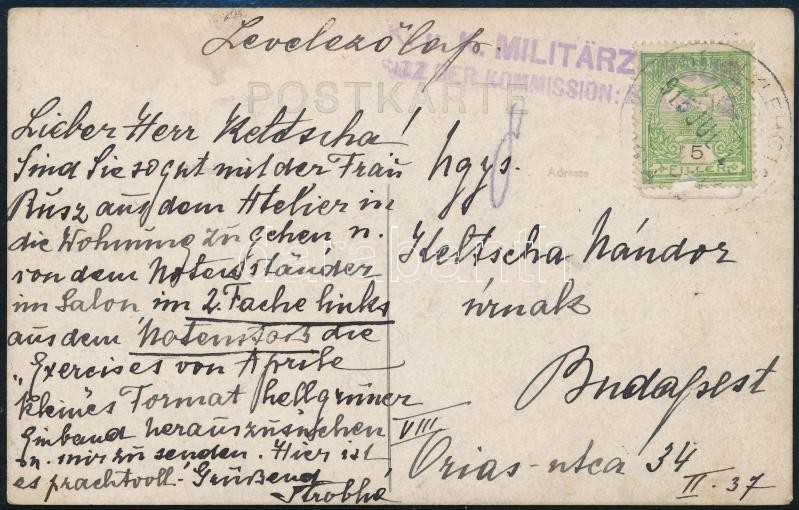 Levelezőlap.
K. u. K. MILITÄRZ
SITZ DER KOMMISSION:
POSTKARTE
Lieber Herr Keltscha!
Sind Sie so gut mit der Frau
Rusz aus dem Atelier in
die Wohnung zu gehen u.
von dem Notenständer
im Salon im 2. Fache links
aus dem Notenstoß die
„Exercises von Aprile
kleines Format hellgrüner
Einband herauszusuchen
u. mir zu senden. Hier ist
es prachtvoll. Grüßend
Adresse
Ngys.
Keltscha Nándor
úrnak
Budapest
VIII
Orias-utca 34
II. 37
915 JUL
5
FILLÉR
darabanth